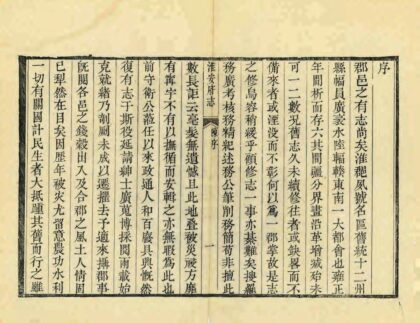 序
郡邑之有志尚矣淮郡夙號名區舊統十二州
縣幅員廣袤水陸輻輳東南一大都會雍正
年間析而存六其間疆分界畫沿革增減殆未
可一二數況舊志久未續修往者或缺畧而不
備來者或湮沒而不彰何以爲一郡掌故是志
之修烏容稍緩乎顧修志一事亦綦難矣搜羅
務廣考核務精紀述務公筆削務簡苟非擅此
淮安府志
序
一
數長詎云毫髮無遺憾且此地疊被災祲方靡
有寗宇不有以撫循而安輯之亦無暇爲此也
前守衛公蒞任以來政通人和百廢具興慨然
復有志于斯役延請紳士廣蒐博採閱兩載始
克就緒乃剞劂未成以遷擢去予適來攝郡事
既閱各邑之錢穀出入及合郡之風土人情固
已犁然在目矣因歷年被災尤留意農功水利
一切有關國計民生者大抵踵其舊而行之雖